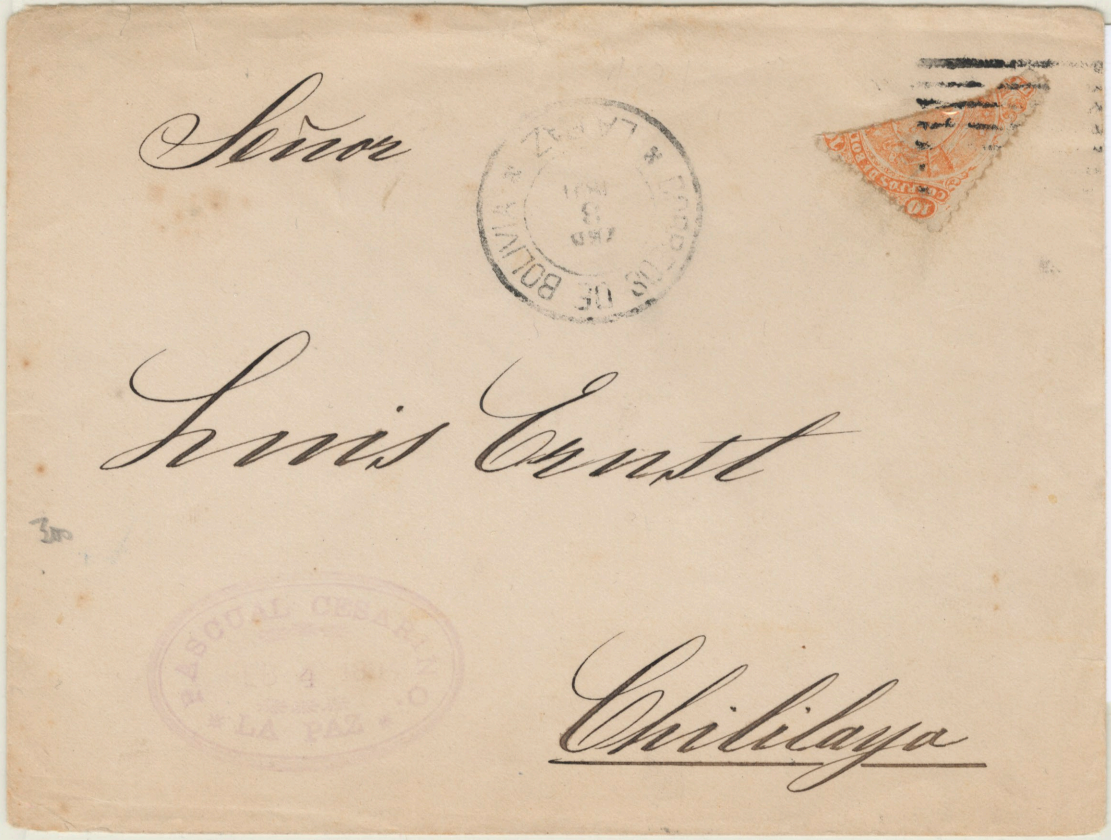 Señor
CORREOS DE BOLIVIA * LA PAZ *
8
10
Luis Ernst
300
PASCUAL CESARINO.
4
* LA PAZ *
Chililaya